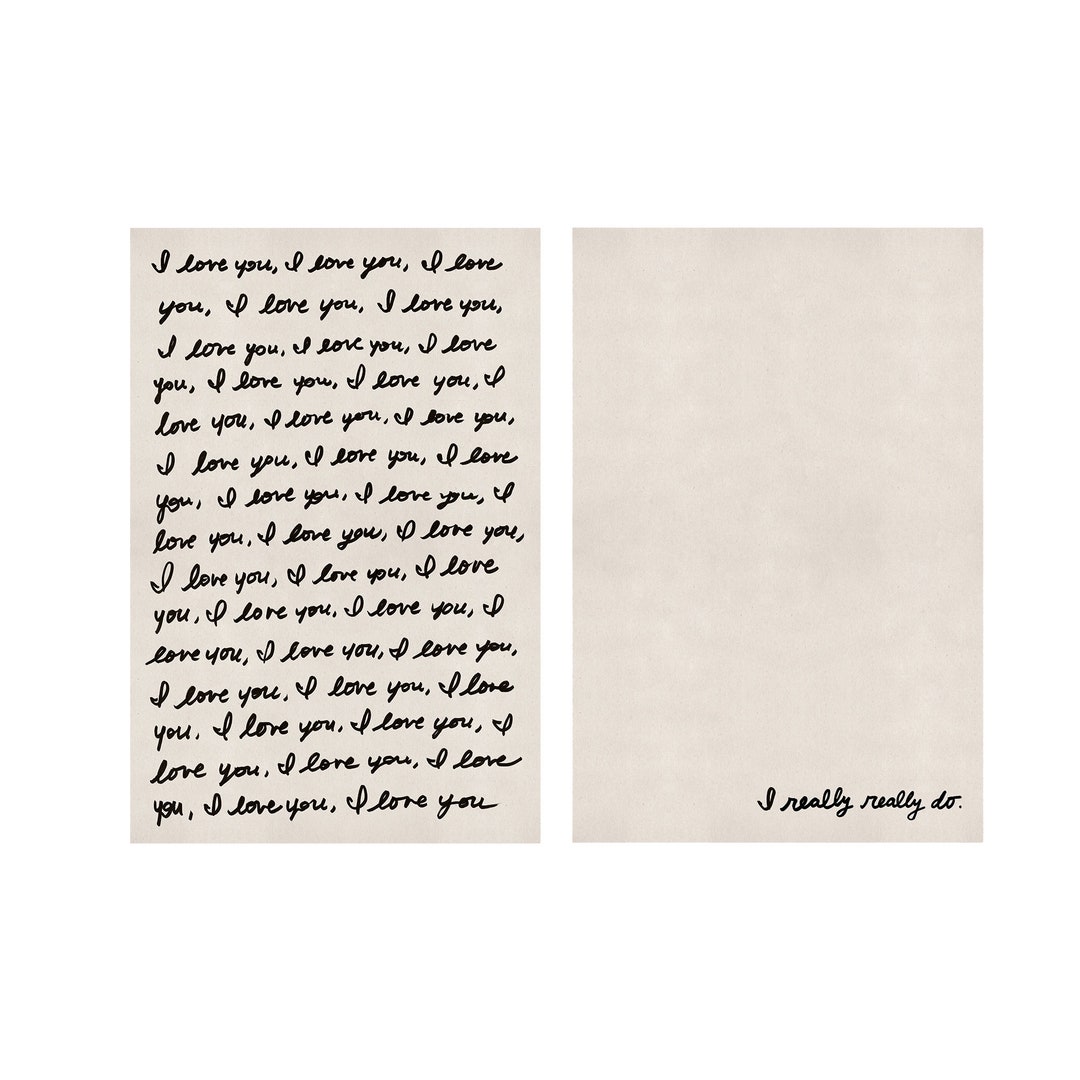 I love you, I love you, I love
you, I love you, I love you,
I love you, I love you, I love
you, I love you, I love you, I
love you, I love you, I love you,
I love you, I love you, I love
you, I love you, I love you, I
love you, I love you, I love you,
I love you, I love you, I love
you, I love you, I love you, I
love you, I love you, I love you,
I love you, I love you, I love
you, I love you, I love you, I
love you, I love you, I love
you, I love you, I love you
I really really do.